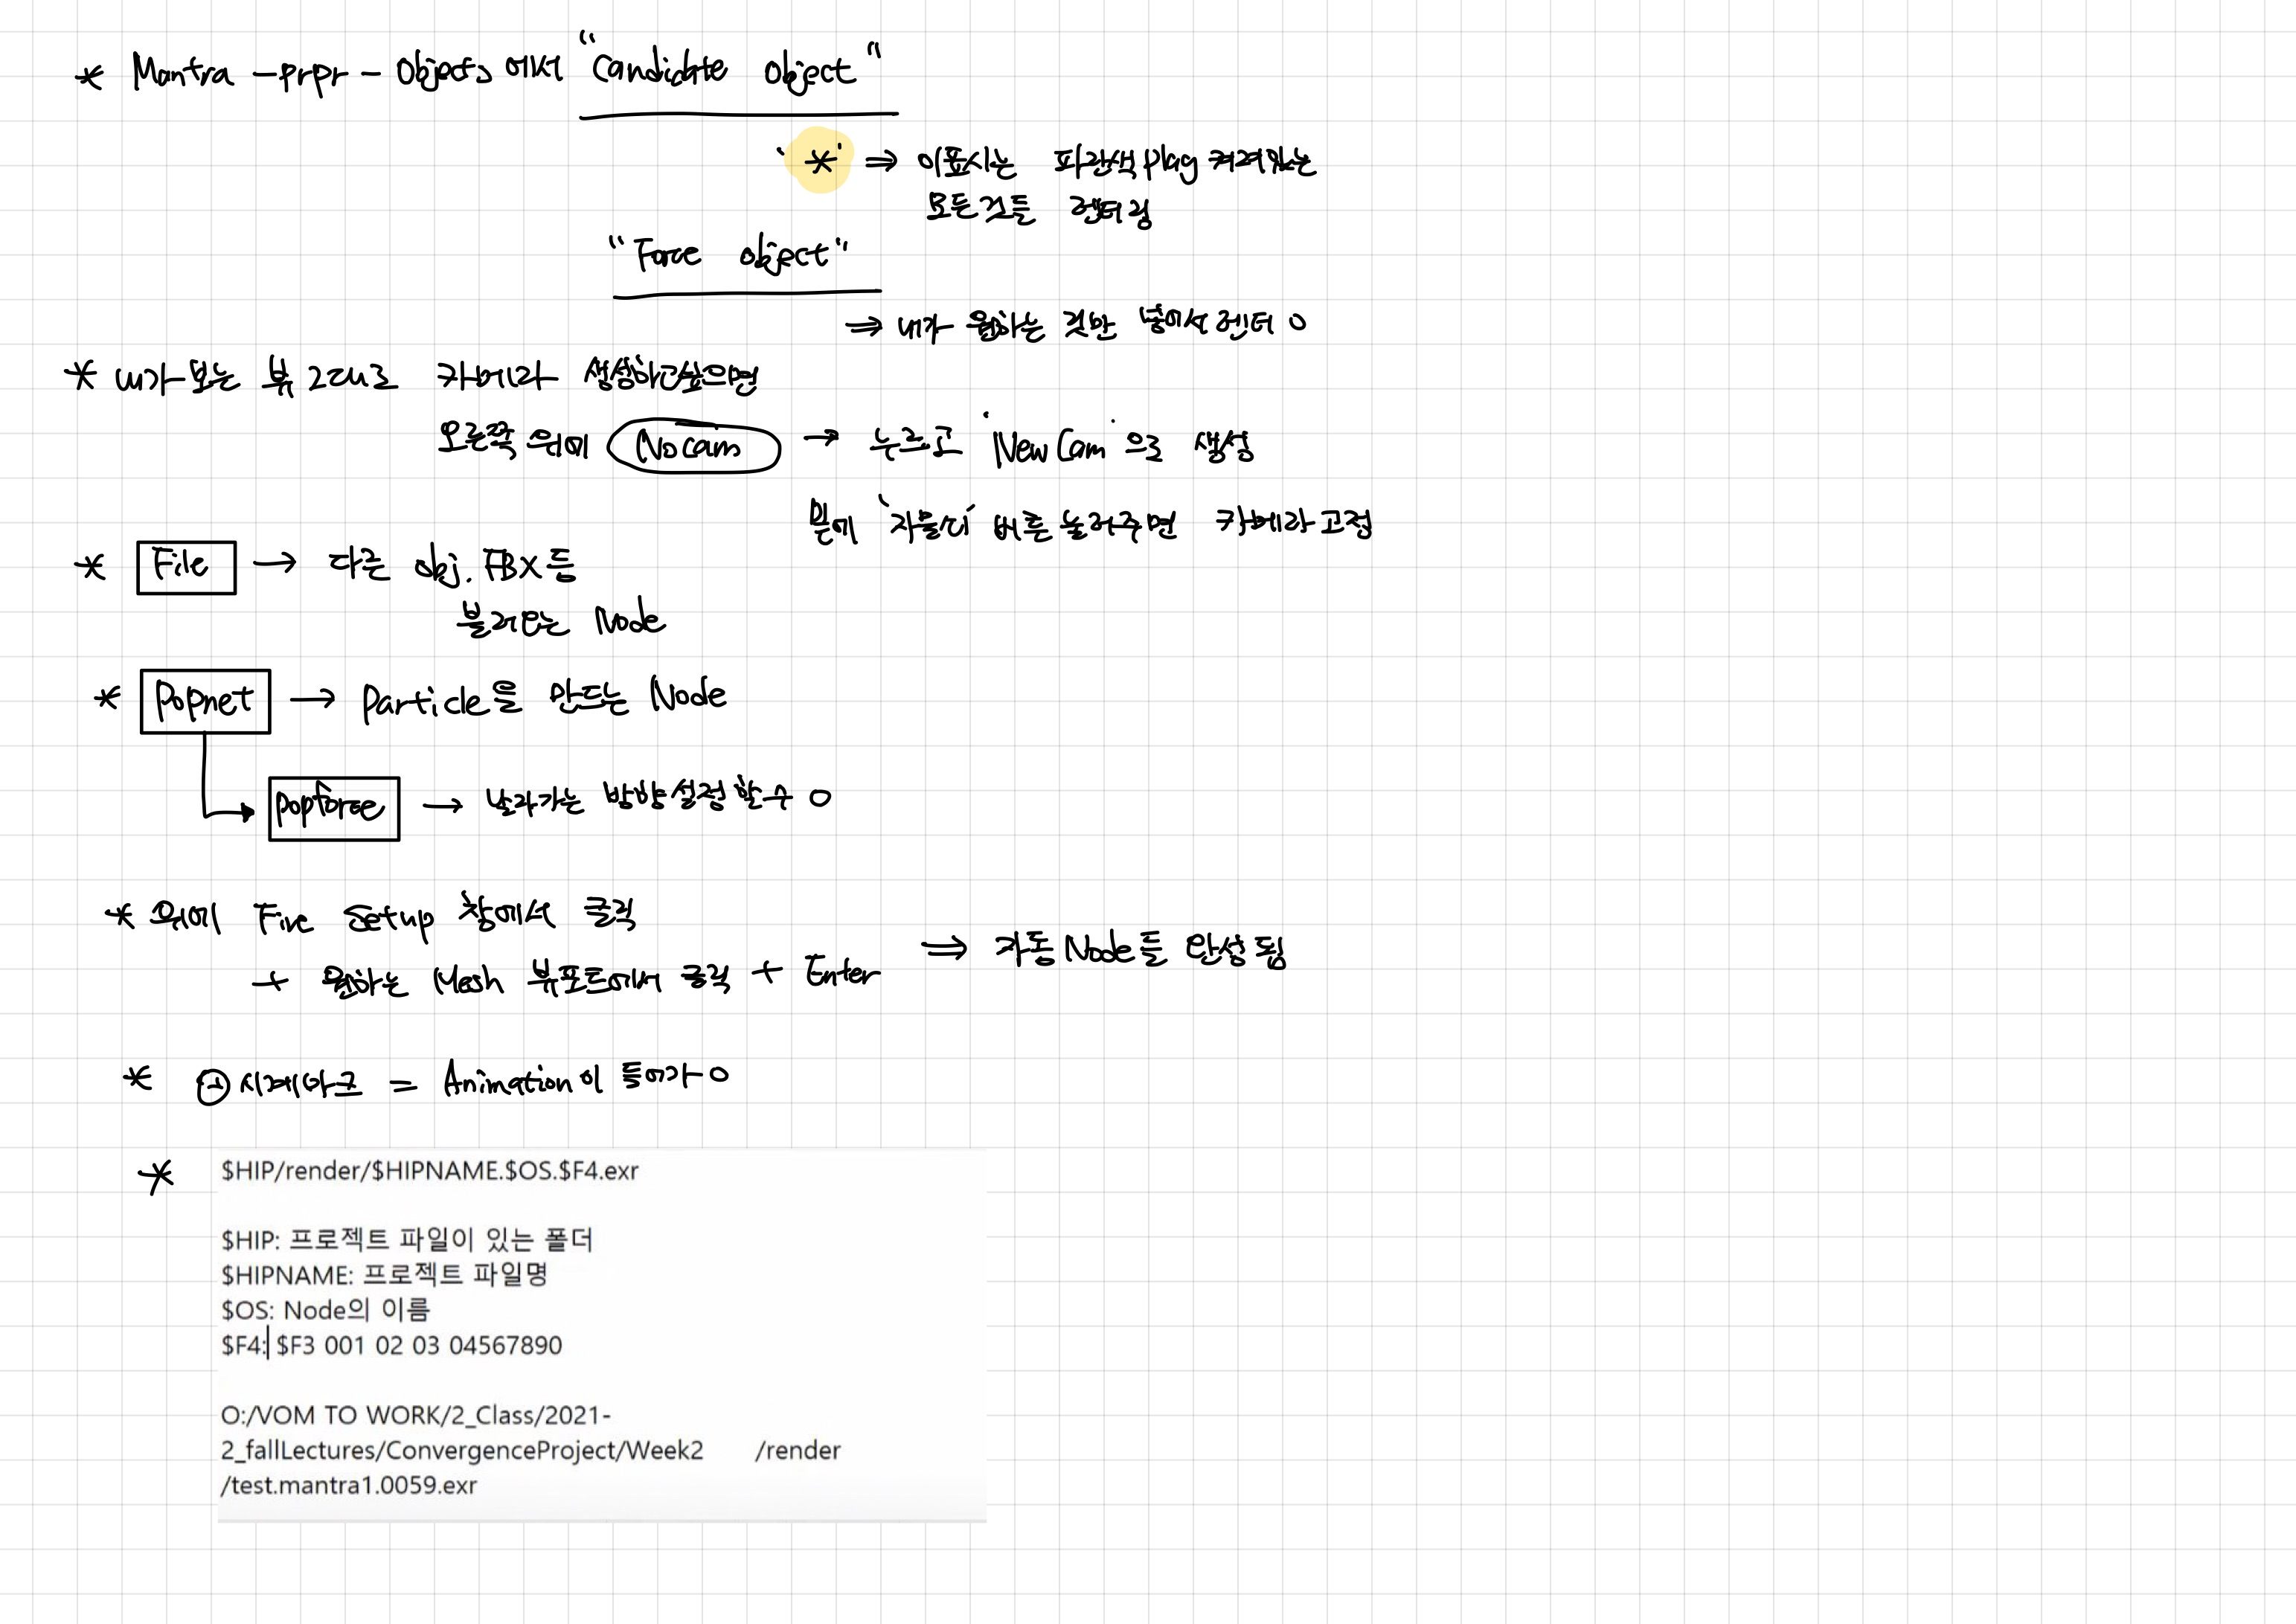 * Mantra - prpr - Objects 에서 "Candidate object"
'*' ⇒ 이표시는 파란색 plag 켜져있는
모든것들 렌더링
"Force object"
⇒ 내가 원하는 것만 넣어서 렌더 O
* 내가 보는 뷰 그대로 카메라 생성하고싶으면
오른쪽 위에 No cam → 누르고 'New Cam'으로 생성
밑에 '자물쇠' 버튼 눌러주면 카메라 고정
* File → 다른 obj. FBX 등
불러오는 Node
* Popnet → Particle을 만드는 Node
popforce → 날라가는 방향 설정 할 수 O
* 위에 Fire Setup 창에서 클릭
+ 원하는 Mesh 뷰포트에서 클릭 + Enter ⇒ 자동 Node들 완성됨
* 시계마크 = Animation이 들어가 O
* $HIP/render/$HIPNAME.$OS.$F4.exr
$HIP: 프로젝트 파일이 있는 폴더
$HIPNAME: 프로젝트 파일명
$OS: Node의 이름
$F4: $F3 001 02 03 04567890
O:/VOM TO WORK/2_Class/2021-
2_fallLectures/ConvergenceProject/Week2 /render
/test.mantra1.0059.exr